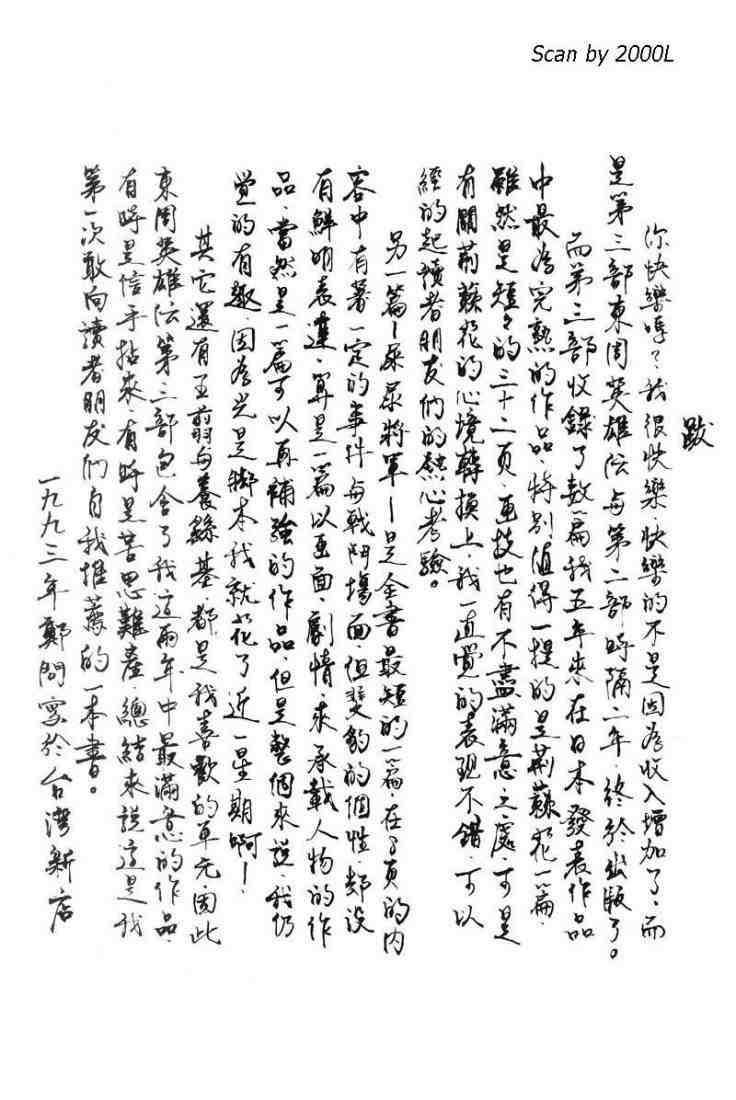 Scan by 2000L
跋
你快樂嗎？我很快樂，快樂的不是因為收入增加了，而
是第三部東周英雄伝与第二部時隔二年，終於出版了。
而第三部收錄了数篇我五年來在日本發表作品
中最為完熟的作品，特別值得一提的是荊蘇花一篇，
雖然是短々的三十二頁，画技也有不盡滿意之處，可是
有關荊蘇花的心境轉換上，我一直覺的表現不錯，可以
經的起讀者朋友們的熱心考驗。
另一篇—屎尿將軍—是全書最短的一篇，在8頁的內
容中有著一定的事件与戰鬥場面，但斐豹的個性，却沒
有鮮明表達，算是一篇以画面，劇情來承載人物的作
品，當然是一篇可以再補強的作品，但是整個來說，我仍
覺的有趣，因為光是脚本，我就花了近一星期啊！
其它還有王翦与養繇基，都是我喜歡的單元，因此
東周英雄伝第三部包含了我這兩年中最滿意的作品，
有時是信手拈來，有時是苦思難產，總結來說這是我
第一次敢向讀者朋友們自我推薦的一本書。
一九九三年鄭問寫於台灣新店